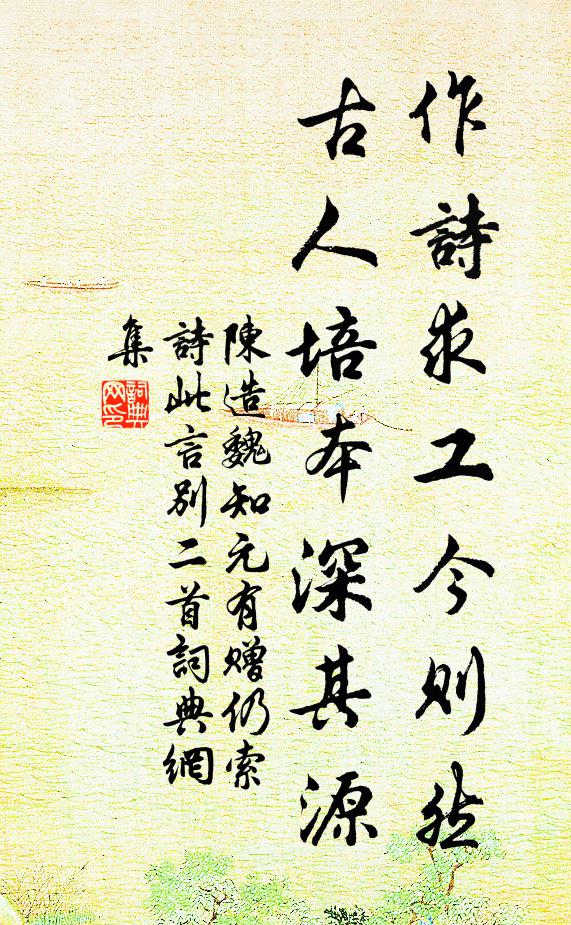 作詩求工今則然
古人培本深其源
陳造魏知元有贈仍索
詩此言別二首詞典網
集
詞典
网印